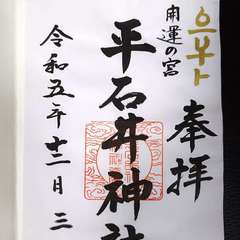 奉拝
開運の宮
平石井神社
令和五年十二月三